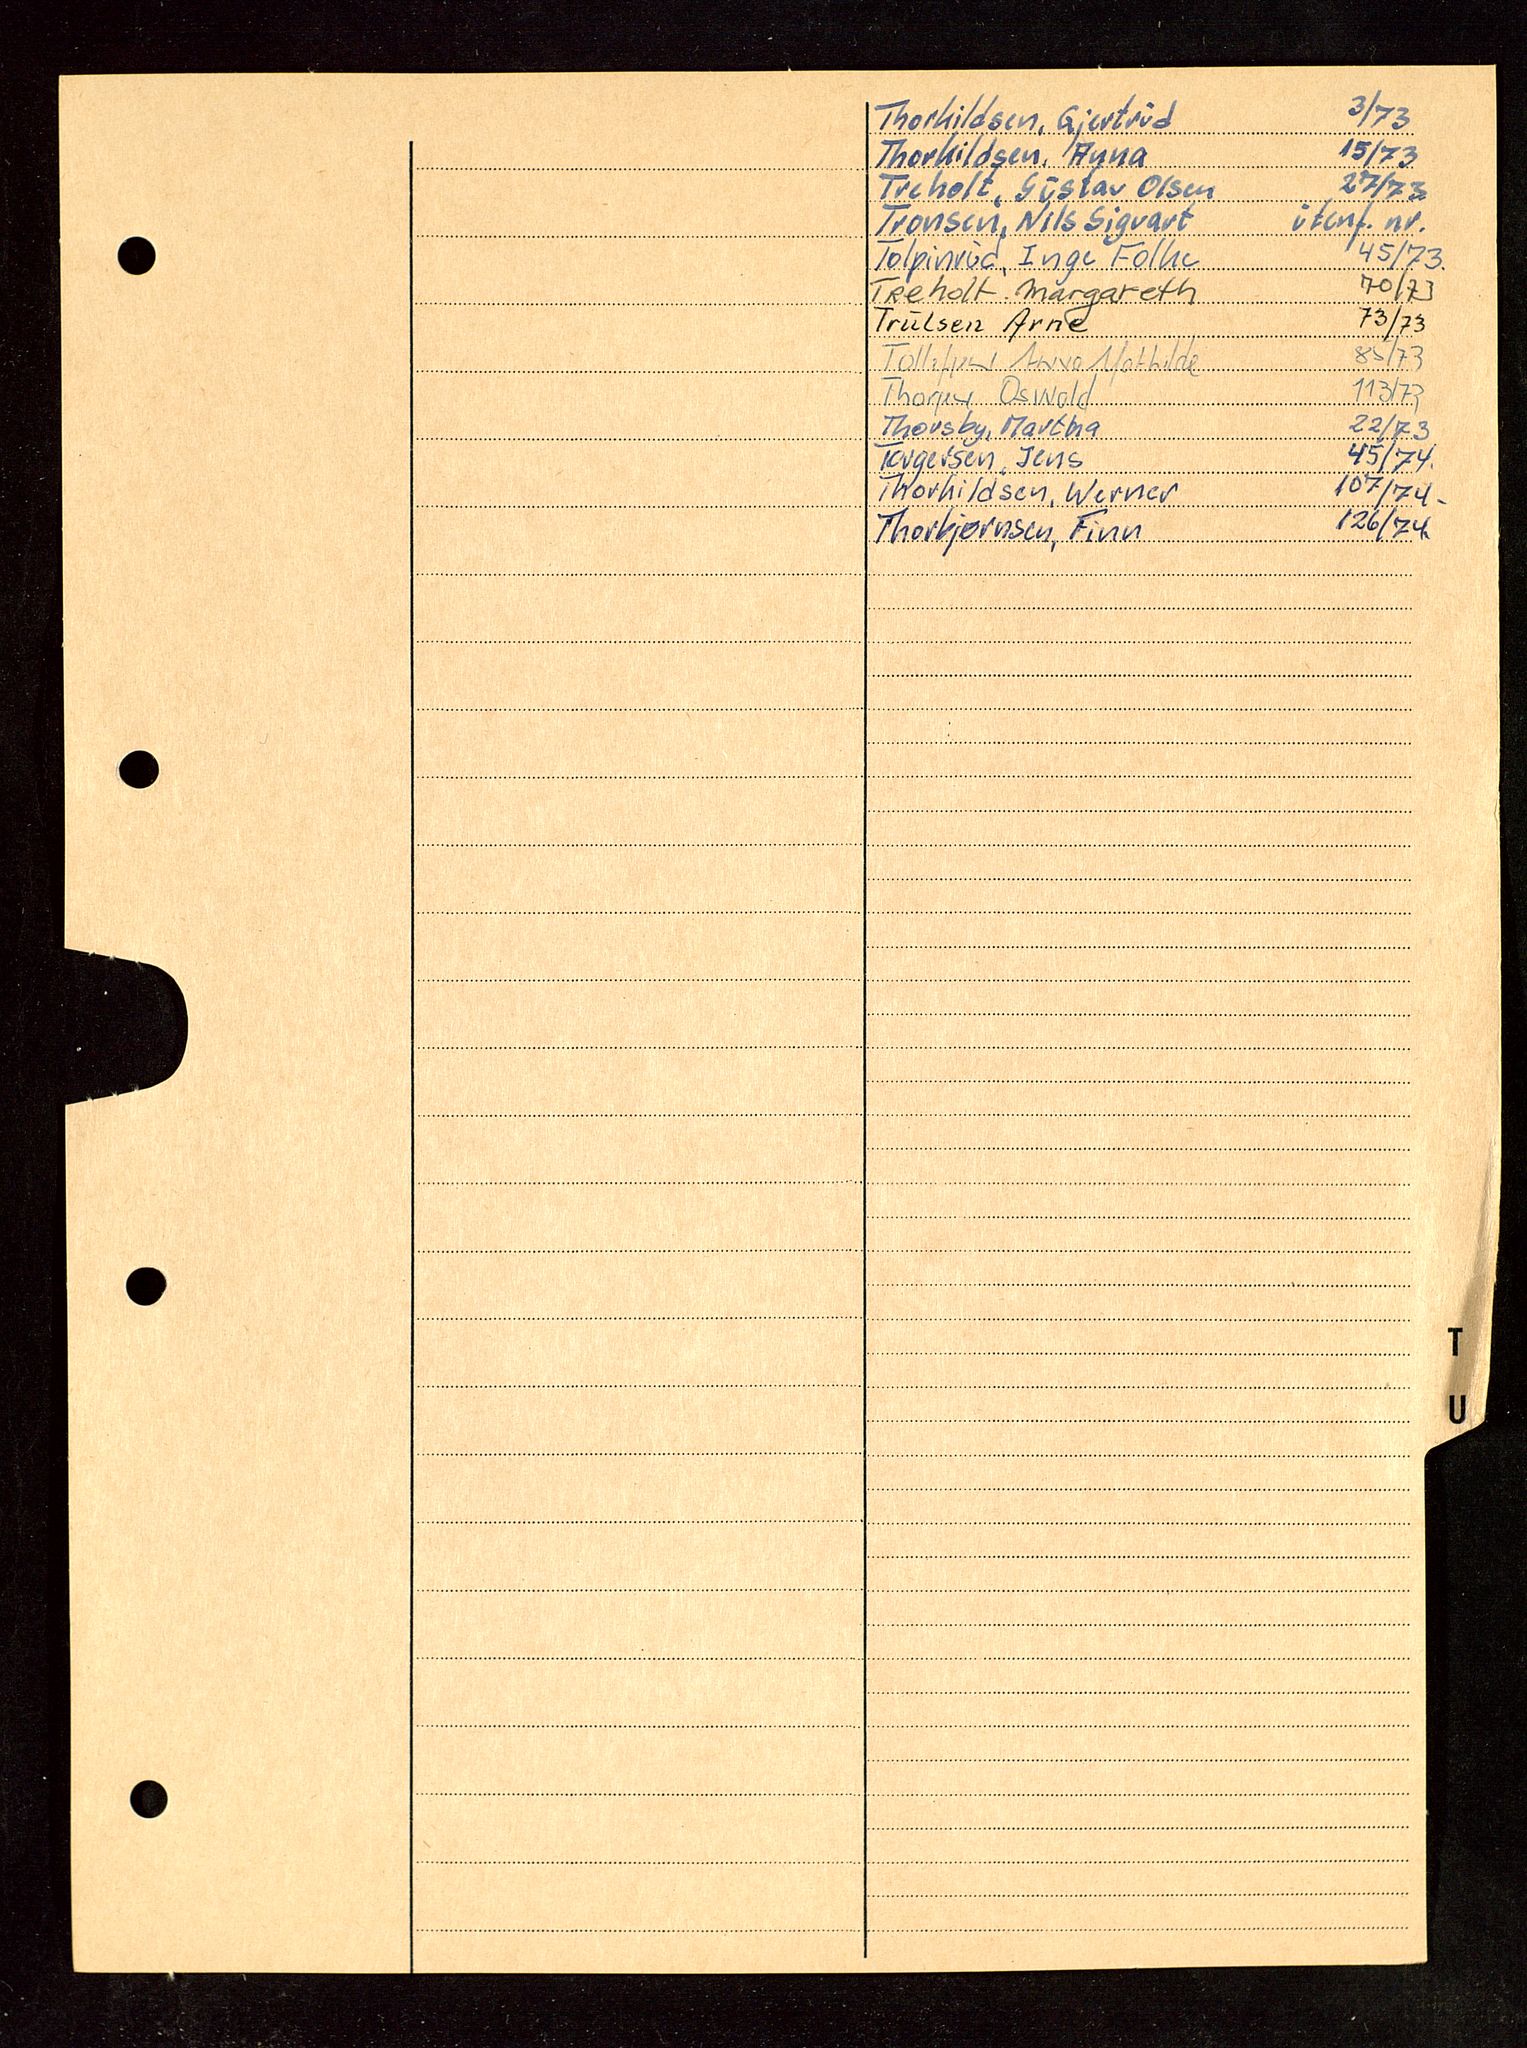 Thorkildsen, Gjertrud 3/73
Thorkildsen, Anna 15/73
Treholt, Gustav Olsen 27/73
Tronsen, Nils Sigvart utenf. nr.
Tolpinrud, Inge Folke 45/73.
Treholt. Margareth 70/73
Trulsen Arne 73/73
Tollefsen Anna Mathilde 85/73
Thorsen Oswald 113/73
Thorsby, Martha 22/73
Torgersen, Jens 45/74.
Thorkildsen, Werner 107/74.
Thorbjørnsen, Finn 126/74.
T
U